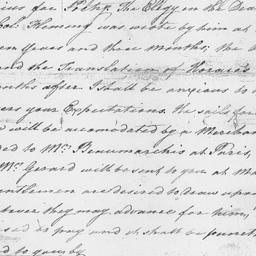 for The Elegy on the Dea
Col. Fleming was wrote by him at
Years and three Months; the
nd the Translation of Horace's
onths after. I shall be anxious to
ers your Expectations. He sails for
will be accomodated by a Merchan
ed to Mr. Beaumarchis at Paris,
Mr. Gerard will be sent to you at Ma
entlemen are desired to draw upon
tever they may advance for him,
to pay and it shall be punct
d to you by